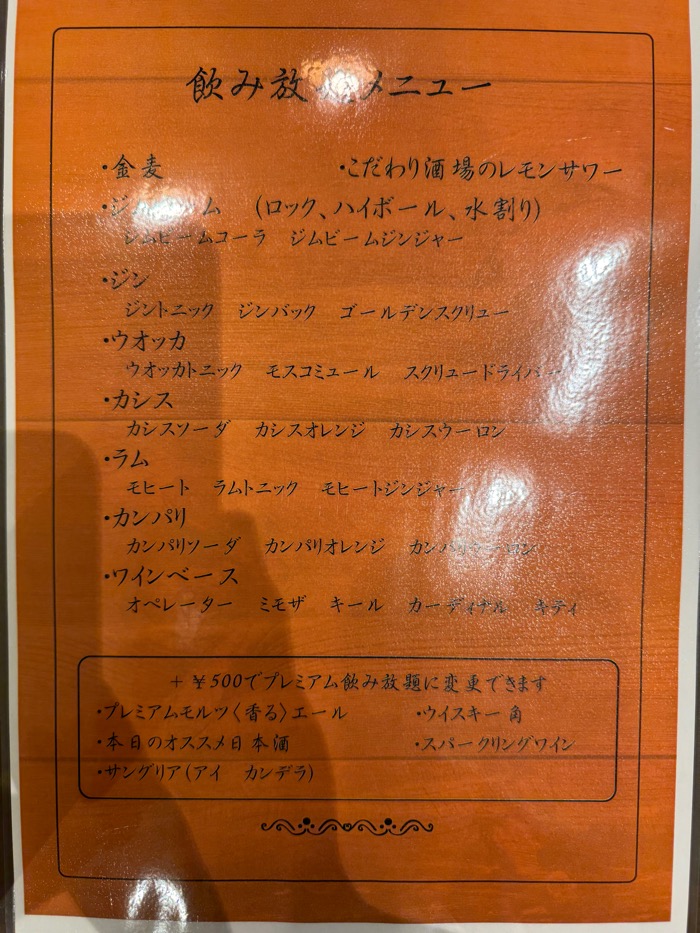 飲み放題メニュー
・金麦 ・こだわり酒場のレモンサワー
・ジムビーム (ロック、ハイボール、水割り)
ジムビームコーラ ジムビームジンジャー
・ジン
ジントニック ジンバック ゴールデンスクリュー
・ウオッカ
ウオッカトニック モスコミュール スクリュードライバー
・カシス
カシスソーダ カシスオレンジ カシスウーロン
・ラム
モヒート ラムトニック モヒートジンジャー
・カンパリ
カンパリソーダ カンパリオレンジ カンパリウーロン
・ワインベース
オペレーター ミモザ キール カーディナル キティ
+¥500でプレミアム飲み放題に変更できます
・プレミアムモルツ〈香る〉エール ・ウイスキー角
・本日のオススメ日本酒 ・スパークリングワイン
・サングリア(アイ カンデラ)